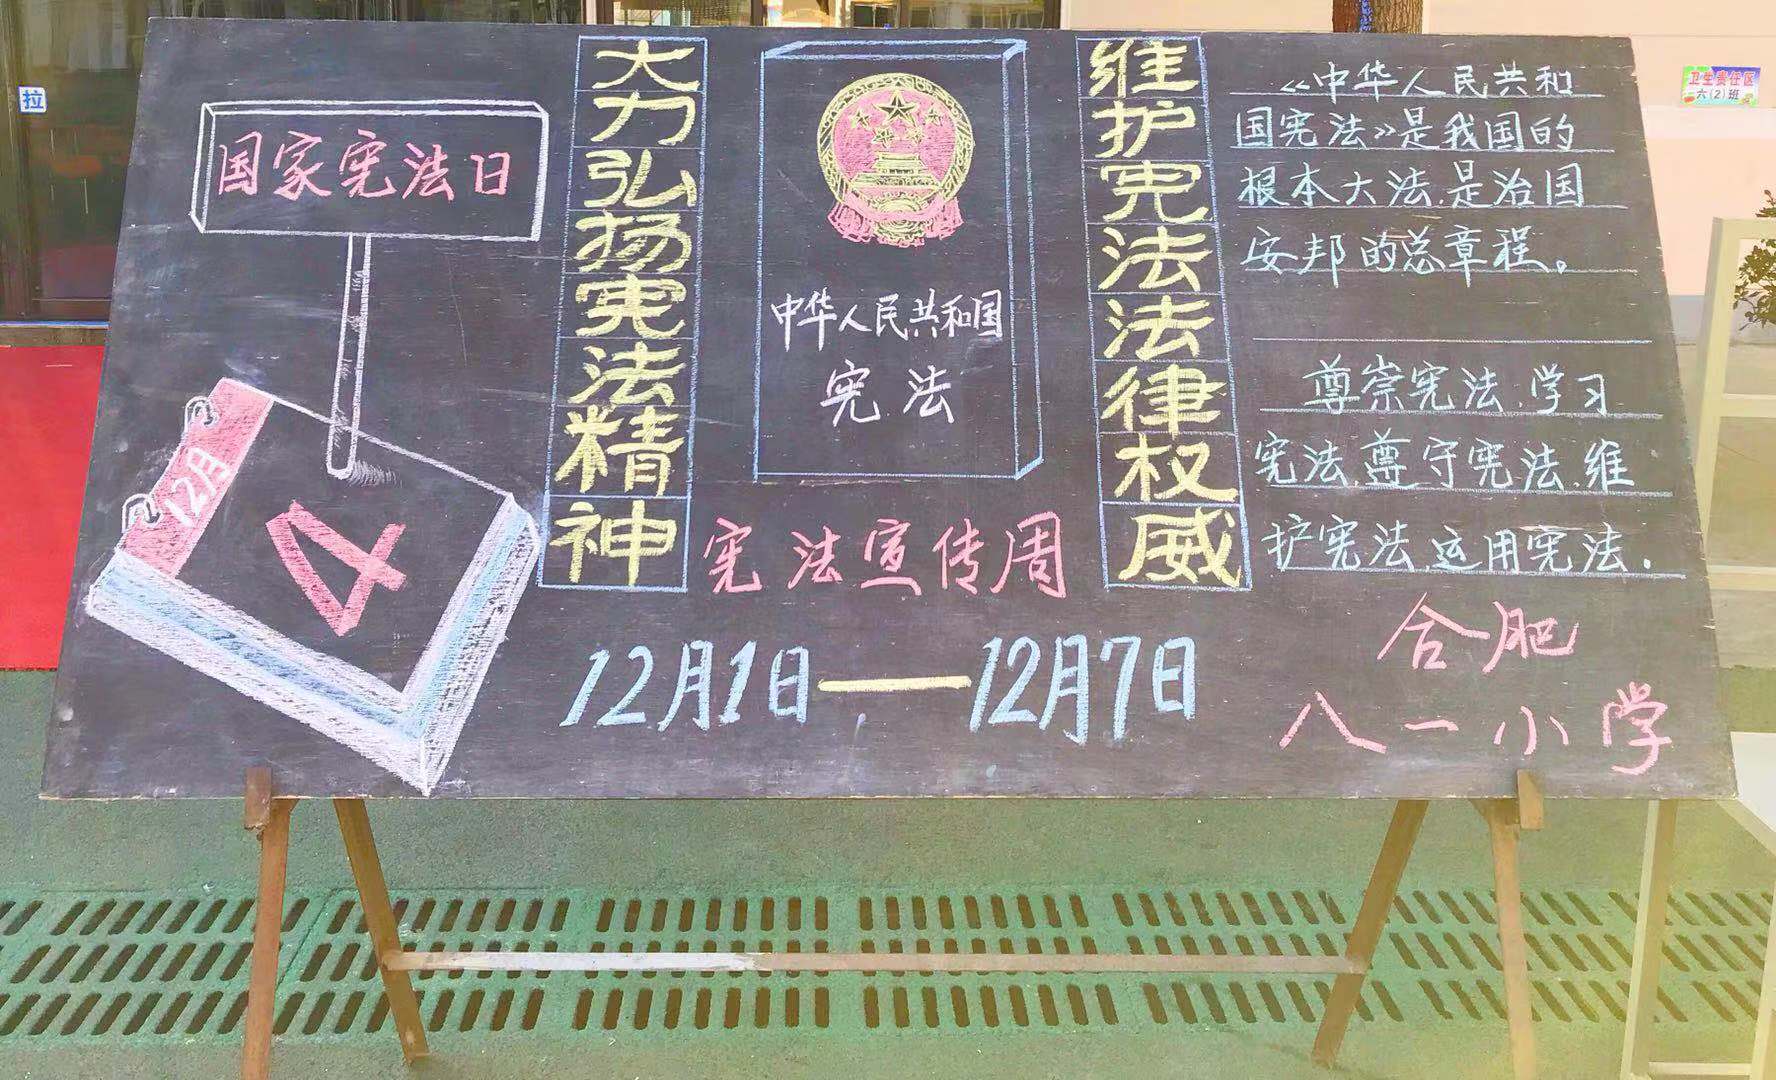 拉
国家宪法日
12月
4
大力弘扬宪法精神
中华人民共和国
宪法
宪法宣传周
12月1日—12月7日
维护宪法法律权威
《中华人民共和
国宪法》是我国的
根本大法,是治国
安邦的总章程。
尊崇宪法,学习
宪法,遵守宪法,维
护宪法,运用宪法.
合肥
八一小学
卫生责任区
六(2)班